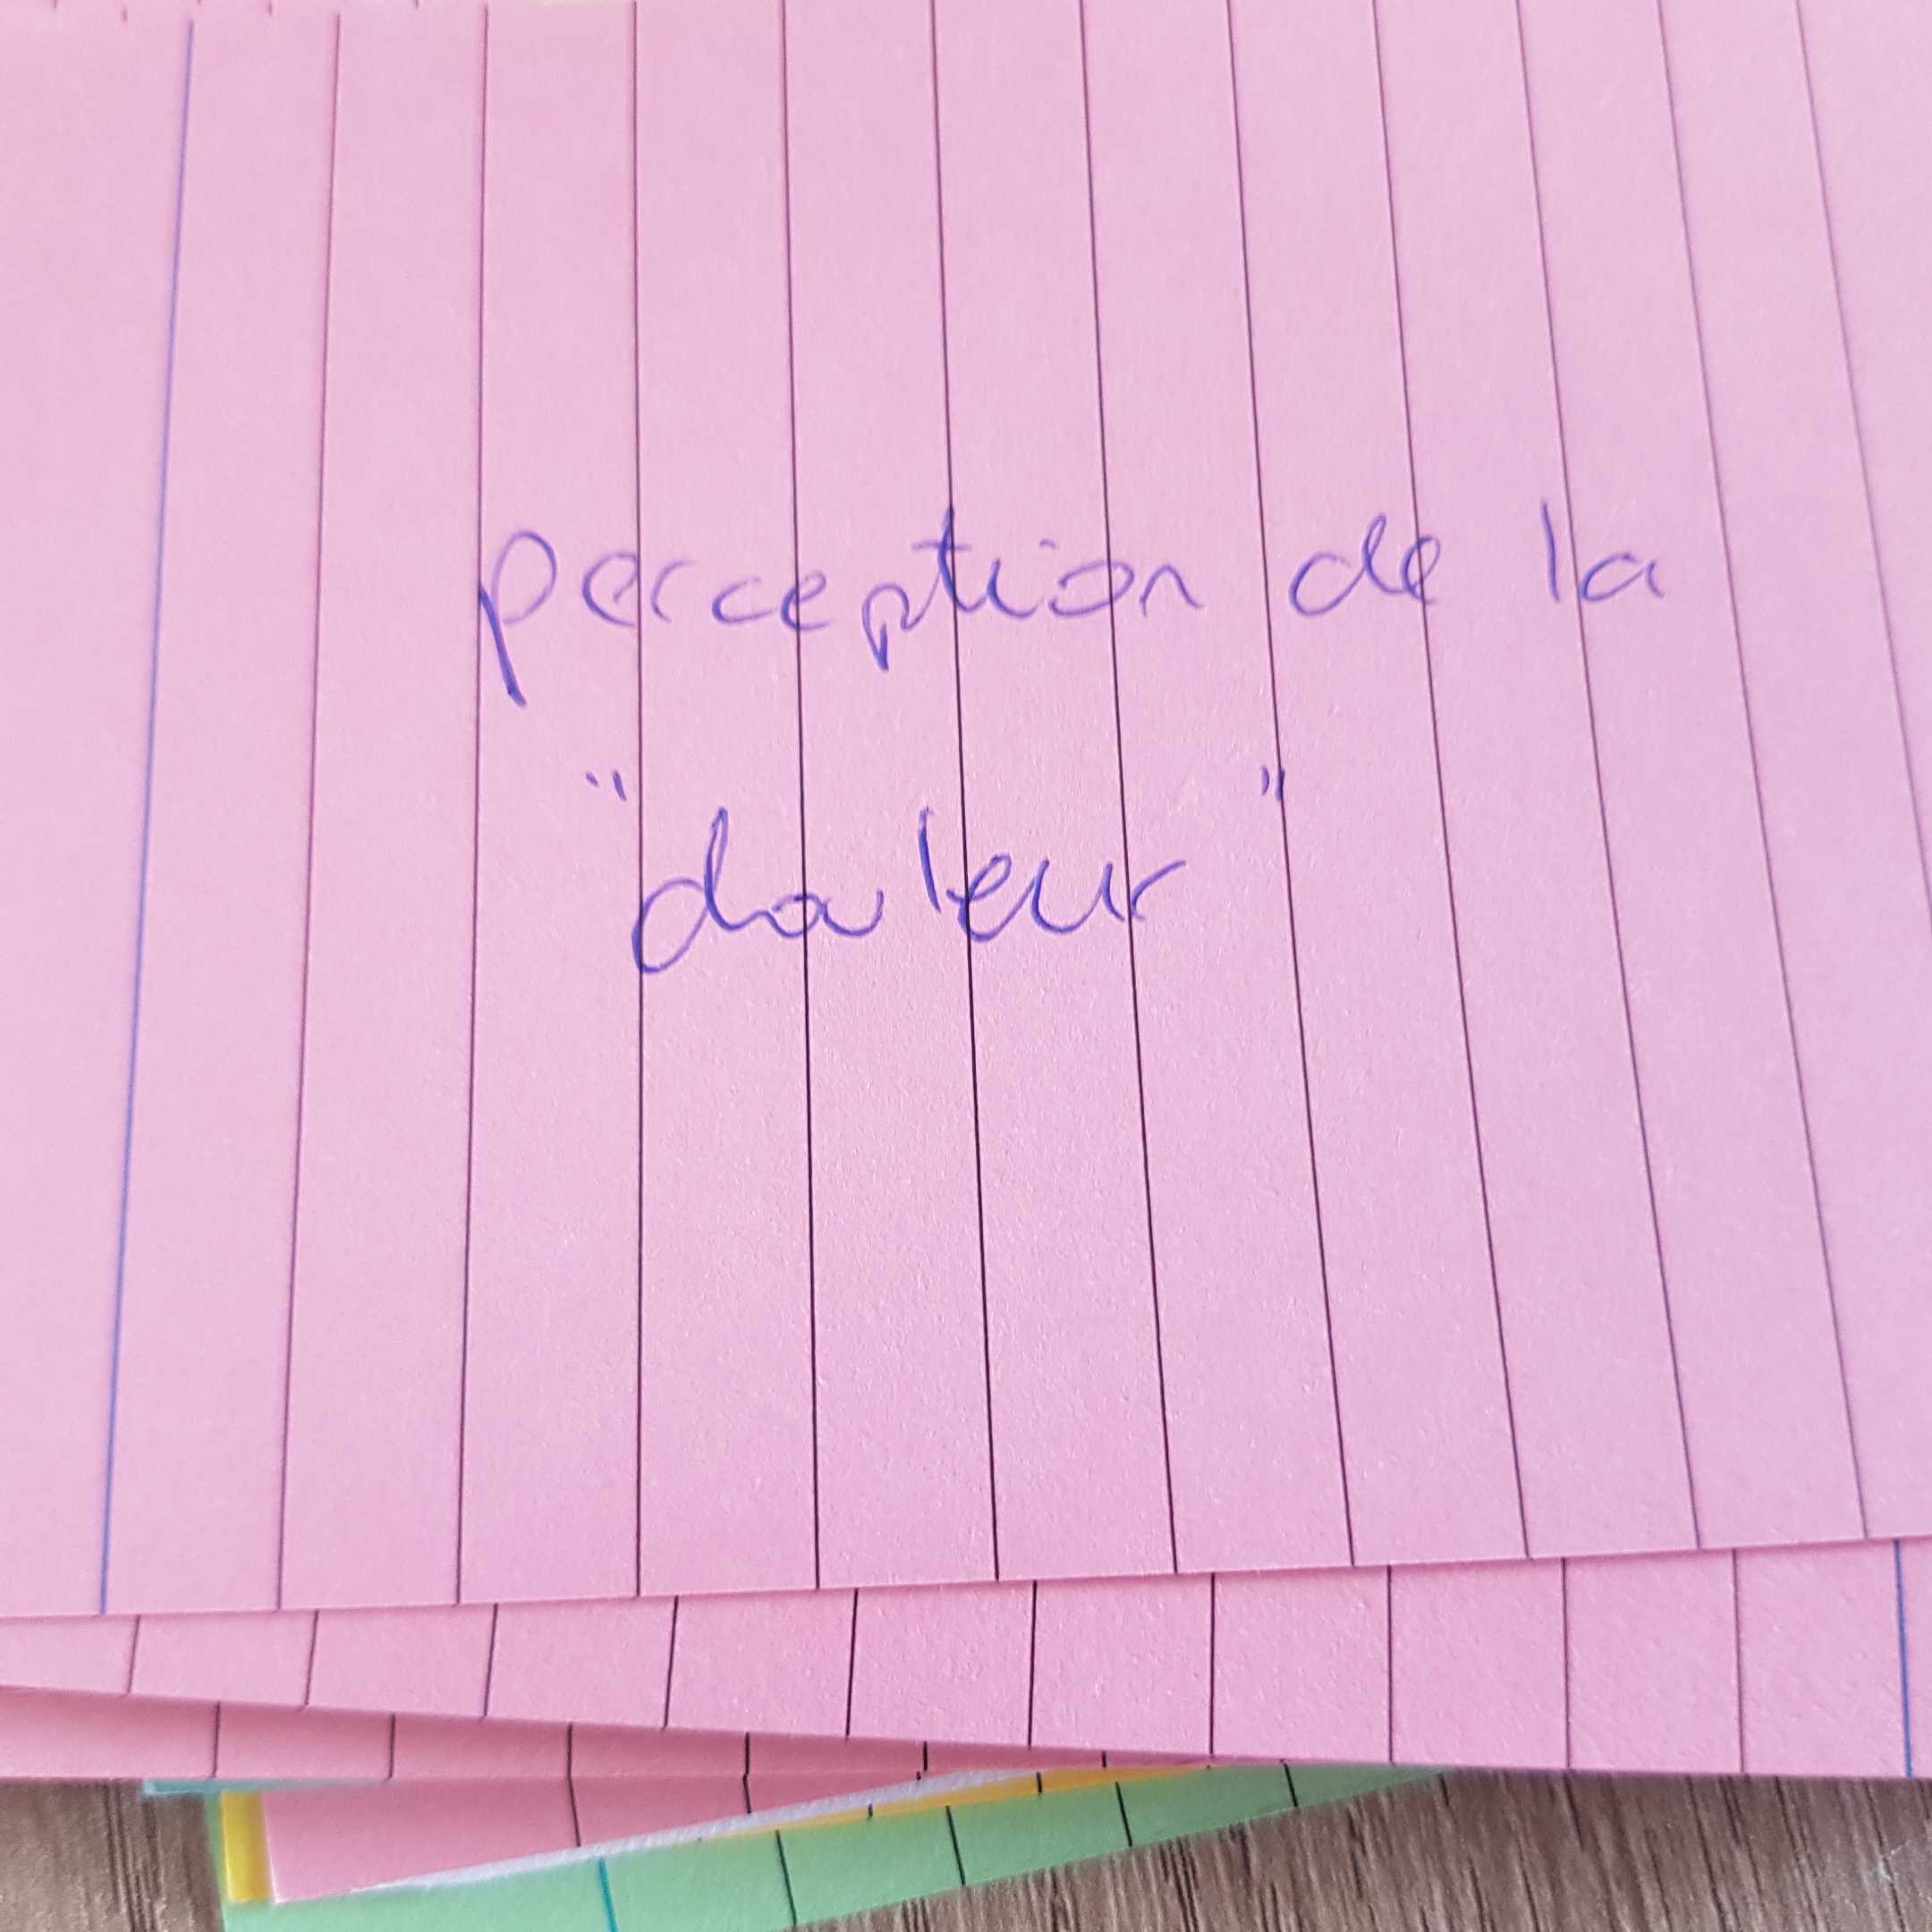 perception de la
"douleur"